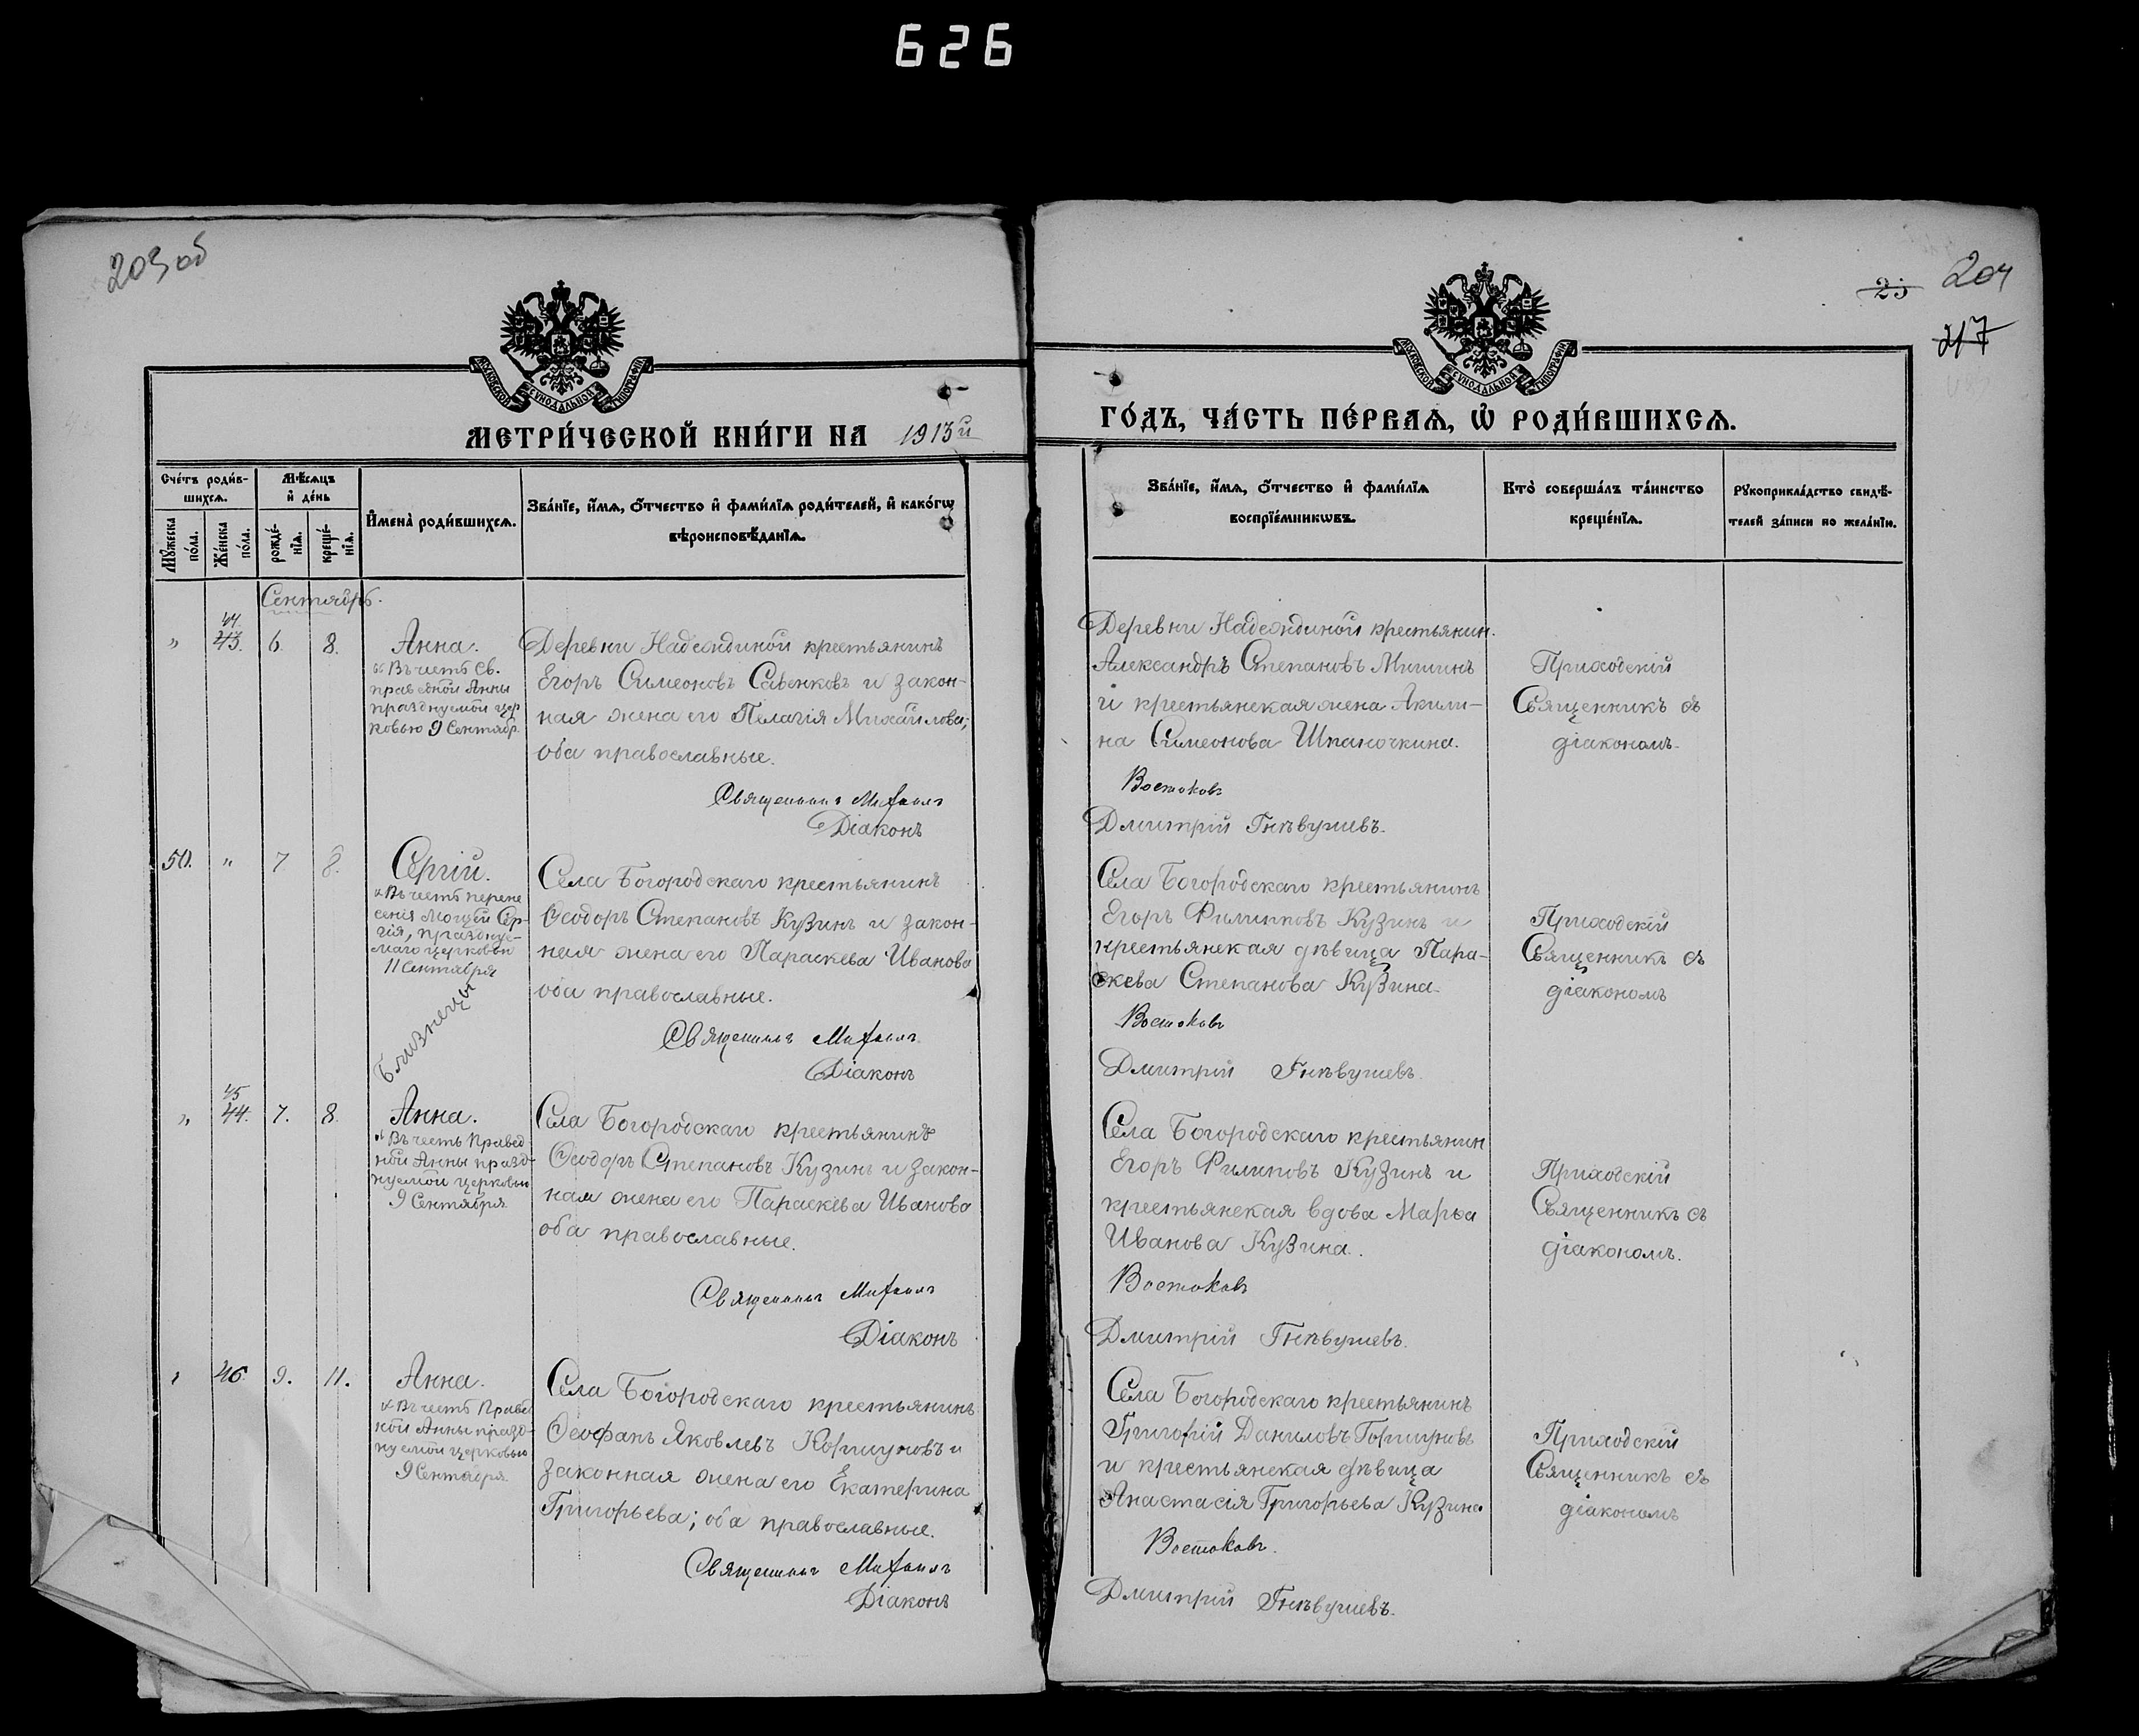 626
203 об
204
25
217
МОСКОВСКОЙ СѴНОДАЛЬНОЙ ТИПОГРАФІИ
МОСКОВСКОЙ СѴНОДАЛЬНОЙ ТИПОГРАФІИ
МЕТРИ́ЧЕСКОЙ КНИ́ГИ НА 1913й
ГО́ДЪ, ЧА́СТЬ ПЕ́РВАѦ, Ѡ҆ РОДИ́ВШИХСѦ.
Сче́тъ роди́в-
шихсѧ.
Мѣ́сѧцъ
и҆ де́нь
Мꙋ́жеска
по́ла.
Же́нска
по́ла.
рожде́-
нїѧ.
креще́-
нїѧ.
И҆мена̀ роди́вшихсѧ.
Зва́нїе, и҆́мѧ, ѻ҆́тчество и҆ фами́лїѧ роди́телей, и҆ како́гѡ
вѣроисповѣ́данїѧ.
Зва́нїе, и҆́мѧ, ѻ҆́тчество и҆ фами́лїѧ
воспрїе́мникѡвъ.
Кто̀ соверша́лъ та́инство
креще́нїѧ.
Рꙋкоприкла́дство свидѣ́-
телей за́писи по жела́нїю.
Сентябрь.
44.
" 43. 6. 8. Анна.
Въ честь Св.
праведной Анны
празднуемой цер
ковью 9 Сентябр.
Деревни Надеждиной крестьянинъ
Егоръ Симеоновъ Савенковъ и закон-
ная жена его Пелагія Михайлова;
оба православные.
Священникъ Михаилъ
Діаконъ
Деревни Надеждиной крестьянин.
Александръ Степановъ Мишинъ
и крестьянская жена Акили-
на Симеонова Шпаночкина.
Востоковъ
Дмитрій Гнѣвушевъ.
Приходскій
Священникъ съ
діакономъ.
50. " 7 8. Сергій.
Въ честь перене
сенія Мощей Сер-
гія, праздну
емаго церковью
11 Сентября
Близнецы
Села Богородскаго крестьянинъ
Ѳеодоръ Степановъ Кузинъ и закон-
ная жена его Параскева Иванова
оба православные.
Священникъ Михаилъ
Діаконъ
Села Богородскаго крестьянинъ
Егоръ Филипповъ Кузинъ и
крестьянская дѣвица Пара-
скева Степанова Кузина.
Востоковъ
Дмитрій Гнѣвушевъ.
Приходскій
Священникъ съ
діакономъ
45
" 44. 7. 8. Анна.
Въ честь Правед
ной Анны празд-
нуемой церковью
9 Сентября
Села Богородскаго крестьянинъ
Ѳеодоръ Степановъ Кузинъ и закон-
ная жена его Параскева Иванова
оба православные.
Священникъ Михаилъ
Діаконъ
Села Богородскаго крестьянин
Егоръ Филиповъ Кузинъ и
крестьянская вдова Марѳа
Иванова Кузина.
Востоковъ
Дмитрій Гнѣвушевъ.
Приходскій
Священникъ съ
діакономъ.
" 46. 9. 11. Анна.
Въ честь Правед
ной Анны празд-
нуемой церковью
9 Сентября
Села Богородскаго крестьянинъ
Ѳеофанъ Яковлевъ Коршуновъ и
законная жена его Екатерина
Григорьева; оба православные.
Священникъ Михаилъ
Діаконъ
Села Богородскаго крестьянинъ
Григорій Даниловъ Горшуновъ
и крестьянская дѣвица
Анастасія Григорьева Кузина
Востоковъ.
Дмитрій Гнѣвушевъ.
Приходскій
Священникъ съ
діакономъ